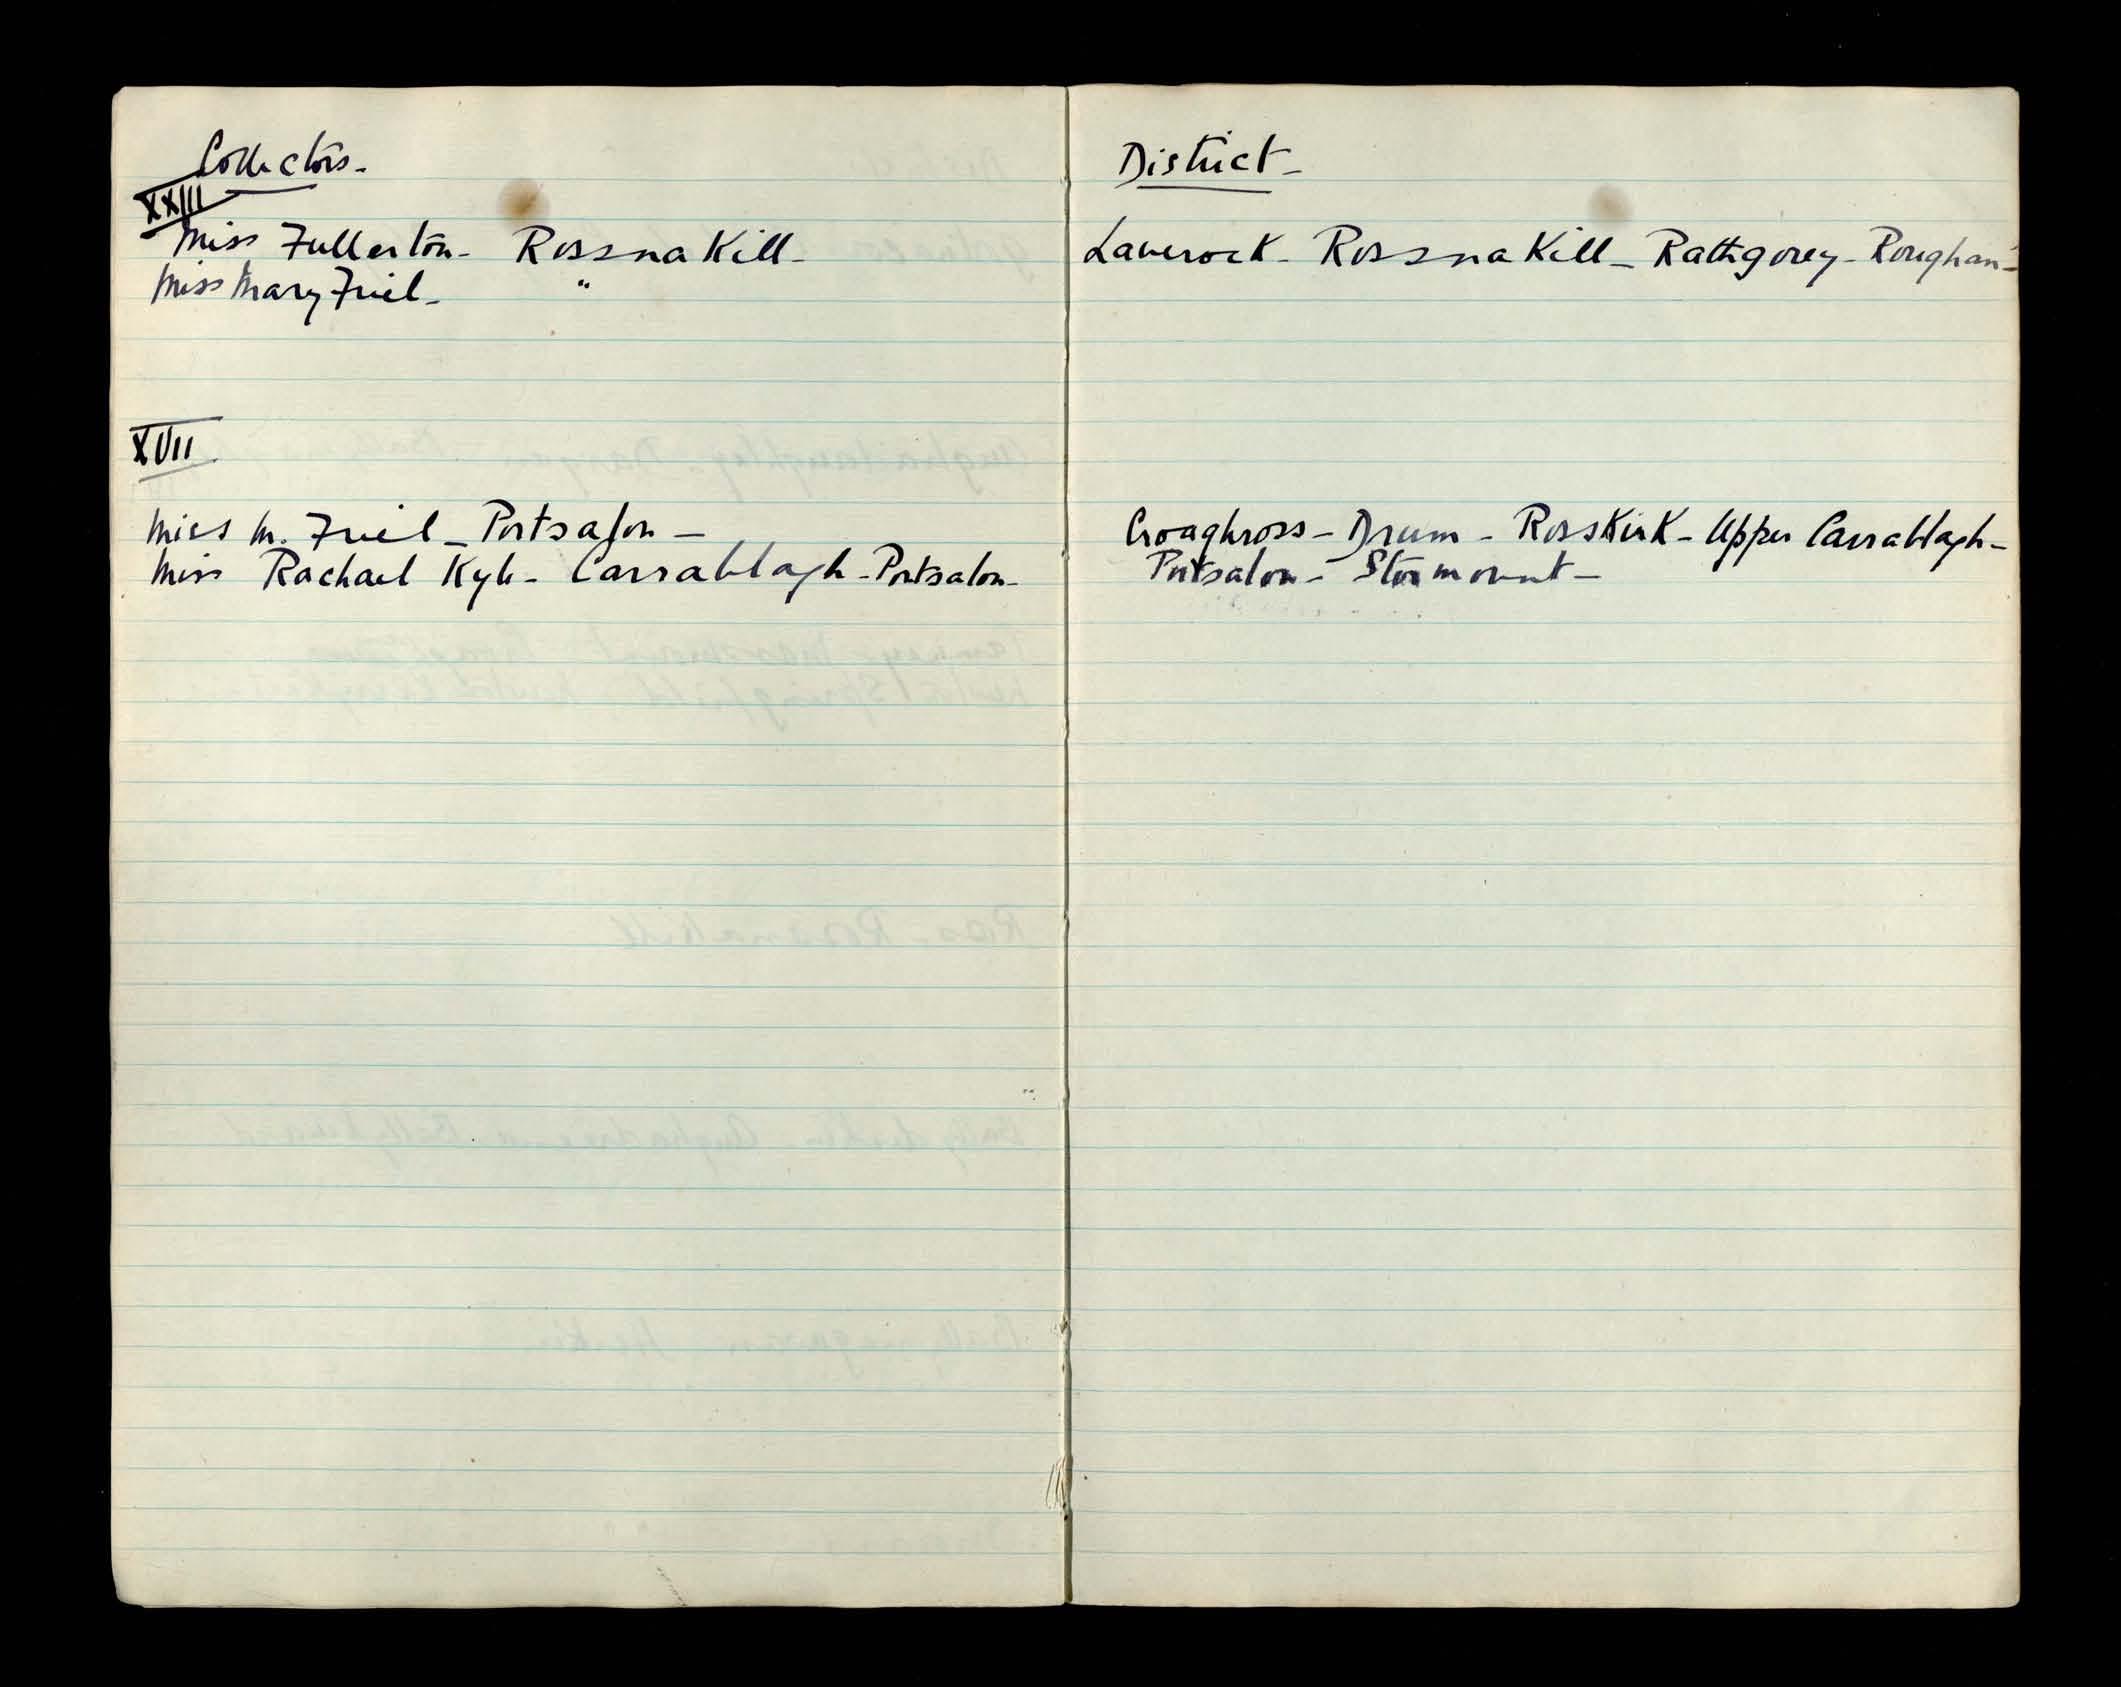 Collectors -
XXIII
Miss Fullerton - RossnaKill -
Miss Mary Friel - "
XVII
Miss M. Friel - Portsalon -
Miss Rachael Kyle - Carrablagh - Portsalon -
District -
Laverock - RossnaKill - Rathgorey - Roughan -
Croaghross - Drum - RossKirK - Upper Carrablagh -
Portsalon - Stormount -